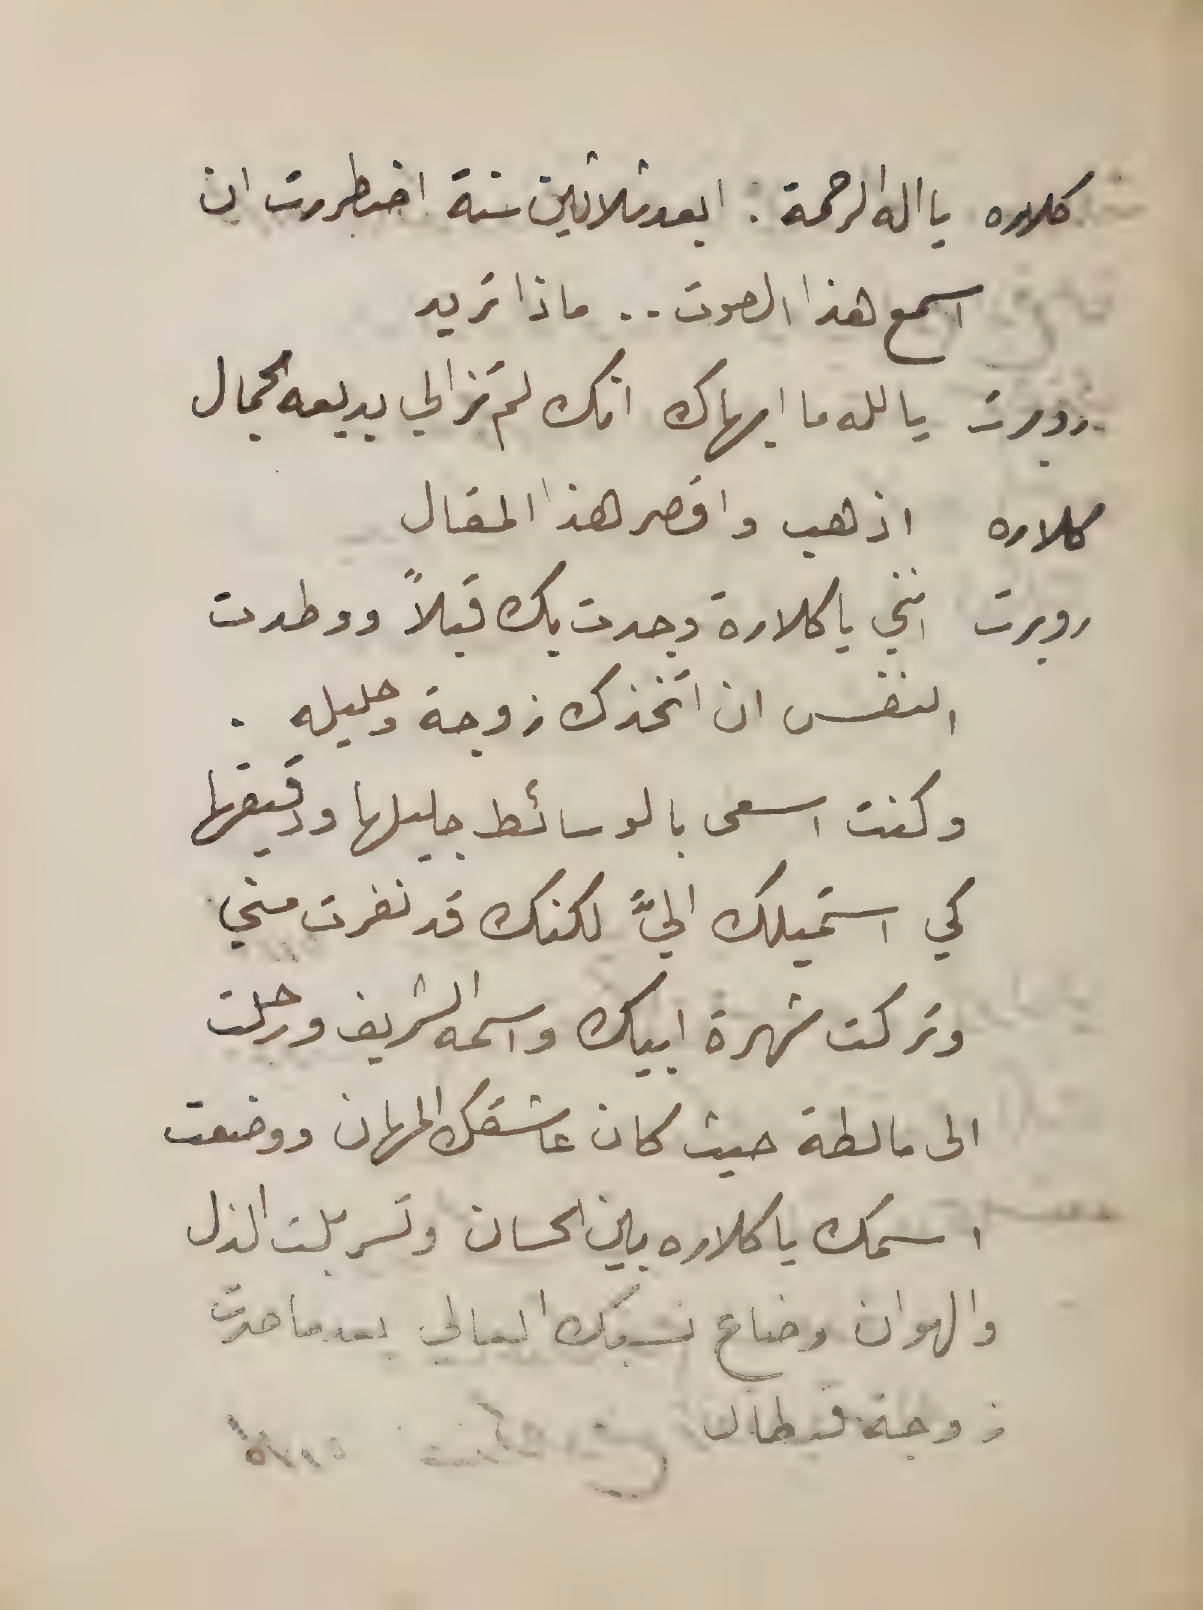 كلاره يا اله الرحمة : ابعد ثلاثين سنة اضطررت ان
اسمع هذا الصوت .. ماذا تريد
روبرت يا لله ما ابهاك انك لم تزالي بديعه الجمال
كلاره اذهب واقصر هذا المقال
روبرت انني يا كلارة وجدت بك قبلاً ووطدت
النفس ان اتخذك زوجة وحليله .
وكنت اسعى بالوسائط جليلها ودقيقها
كي استميلك اليَّ لكنك قد نفرت مني
وتركت شهرة ابيك واسمه الشريف ورحلت
الى مالطة حيث كان عاشقك المهان ووضعت
اسمك يا كلاره بين الحسان وتسربلت الذل
والهوان وضاع نسبك العالي بعدما صرت
زوجة قبطان